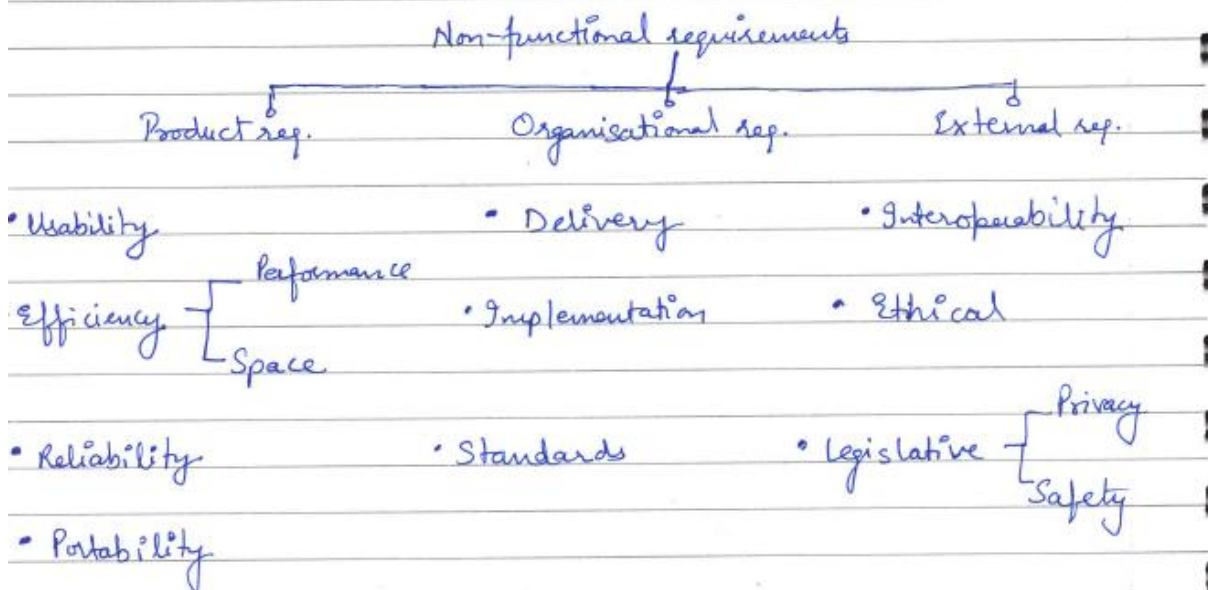 Non-functional requirements
Product req. Organisational req. External req.
• Usability • Delivery • Interoperability
Performance
Efficiency • Implementation • Ethical
Space
Privacy
• Reliability • Standards • Legislative
Safety
• Portability